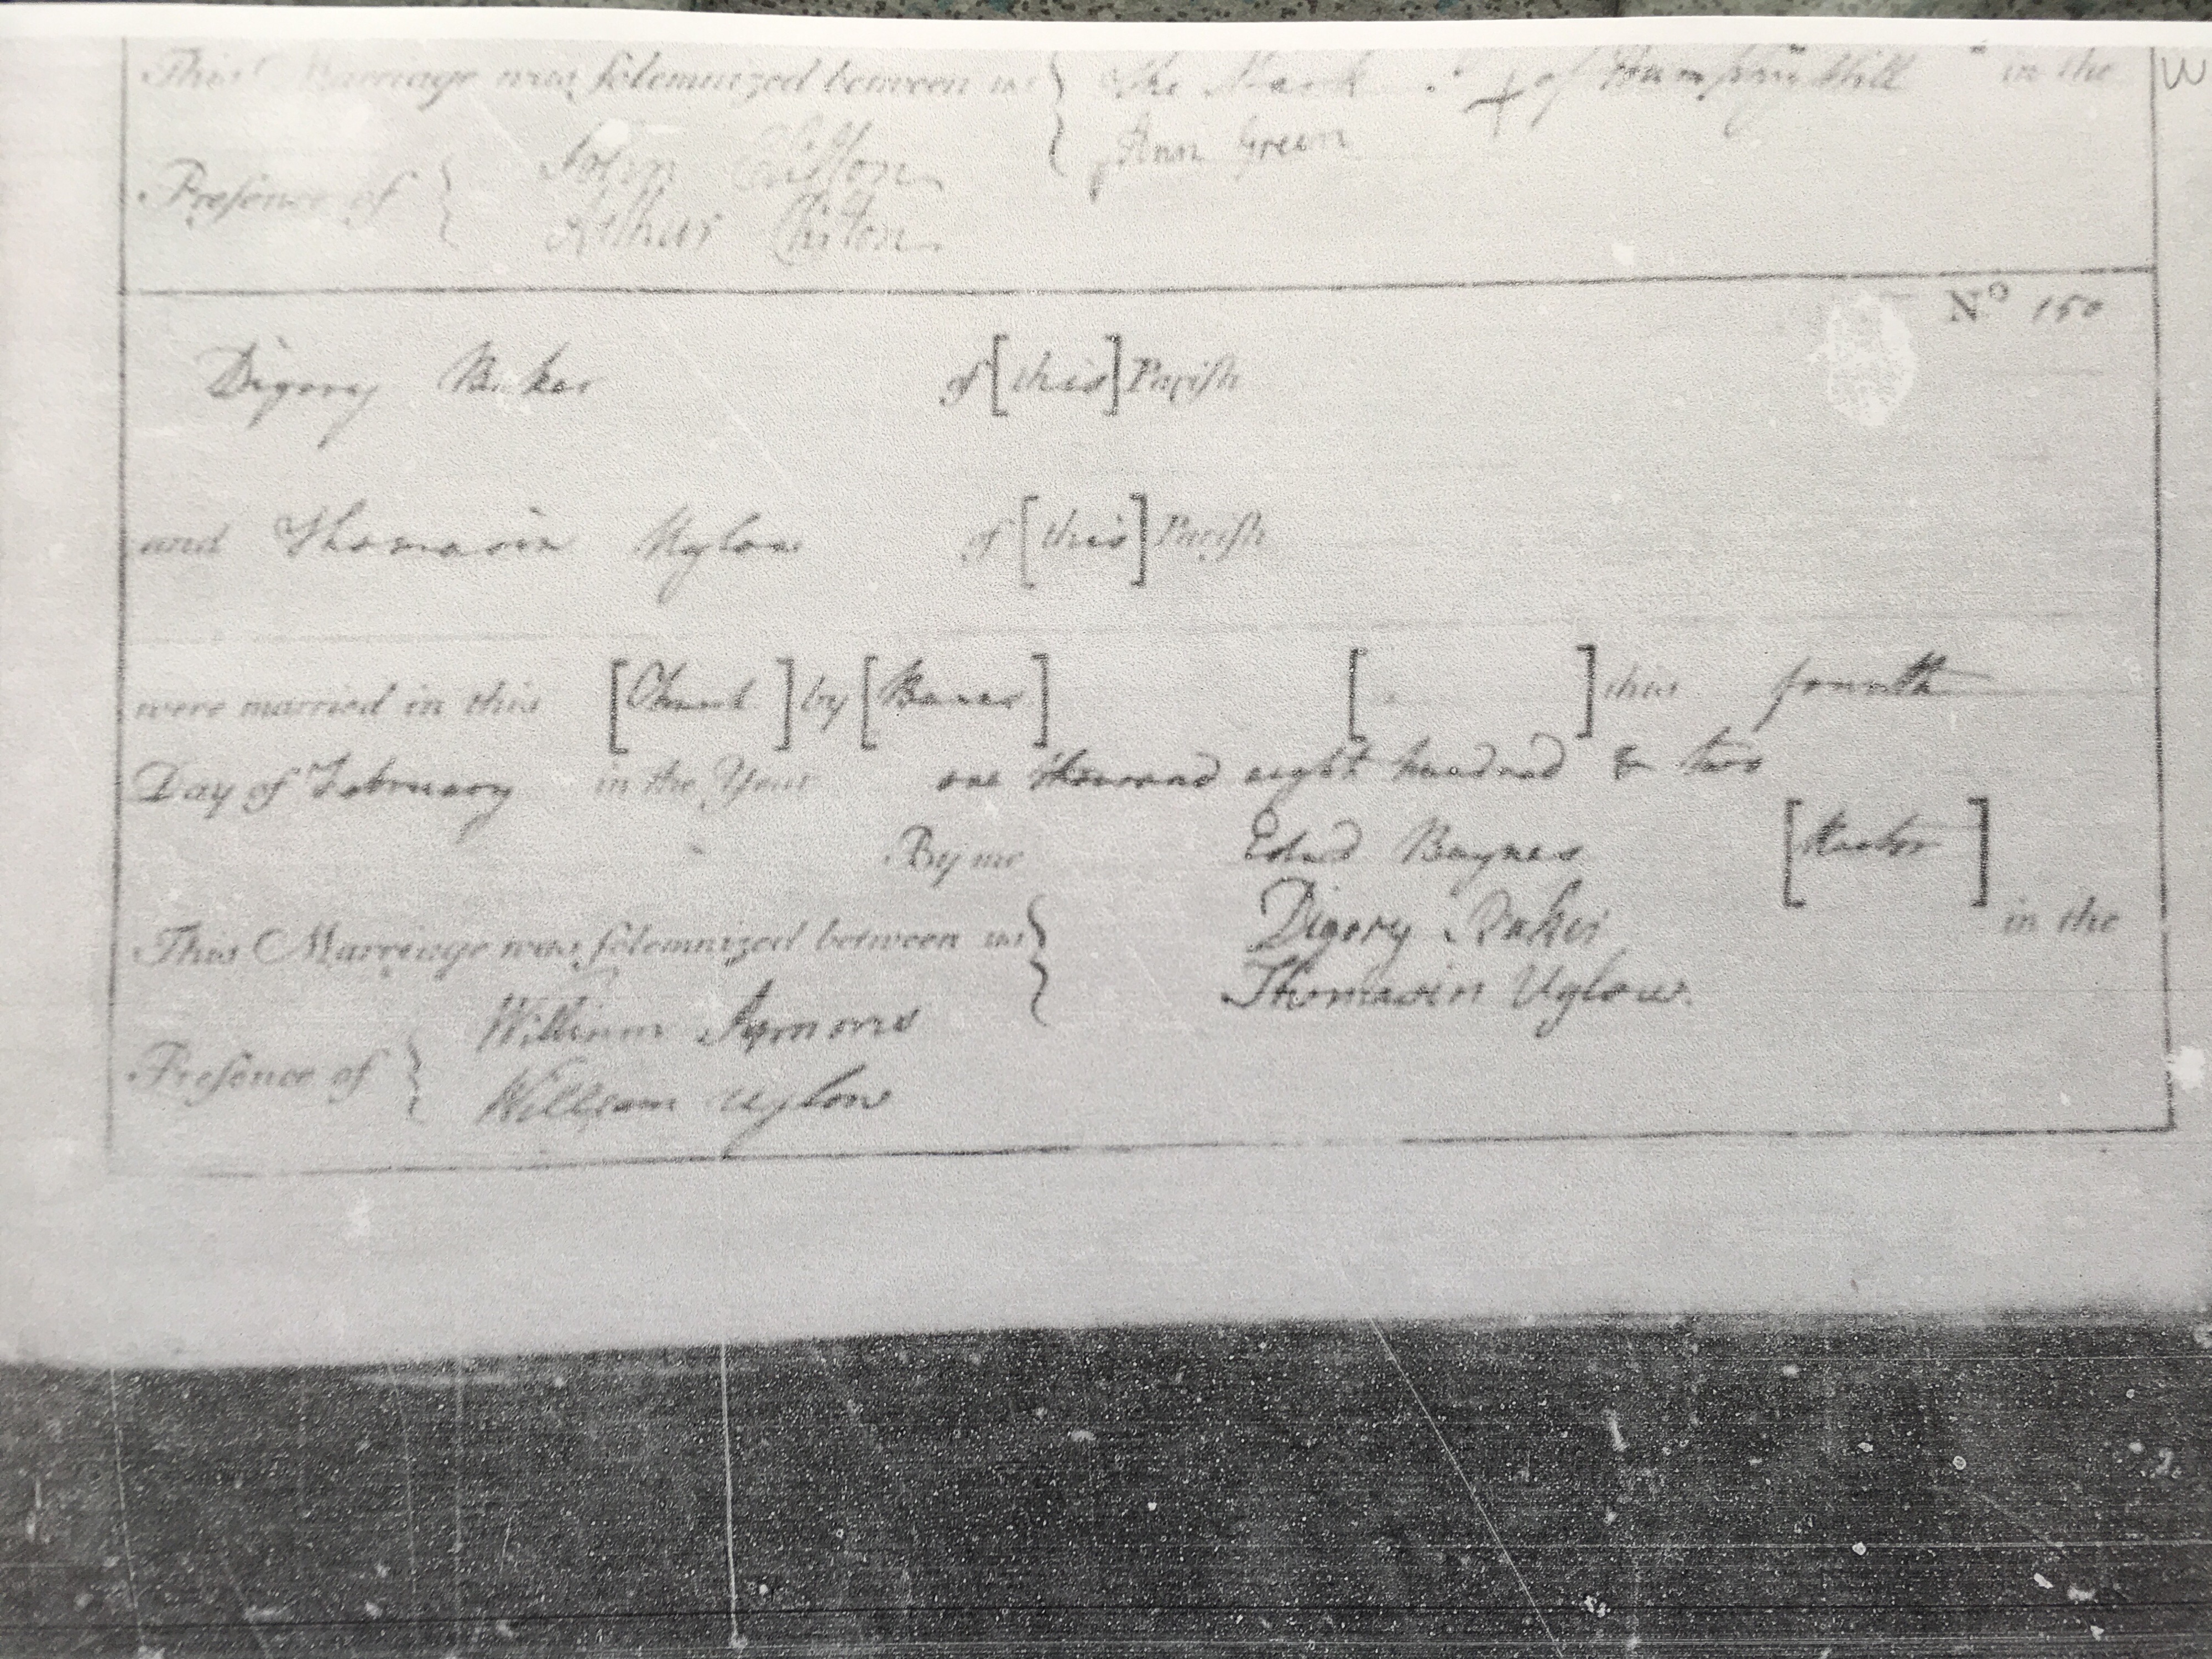 This Marriage was solemnized between us { the Mark + of Humphry Hill in the
Ann Green
Presence of { John Chilton
Arthur Chilton
No 150
Digory Baker of [this] Parish
and Thomasin Uglow of [this] Parish
were married in this [Church] by [Banns] [ ] this fourth
Day of February in the Year one thousand eight hundred & two
By me Edwd Baynes [Rector]
This Marriage was solemnized between us { Digory Baker in the
Thomasin Uglow.
Presence of { William Symons
William Uglow